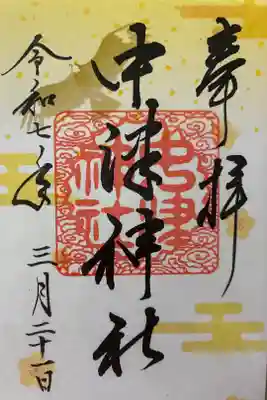 奉拝
中津神社
令和七年 三月二十一日
中津
神社